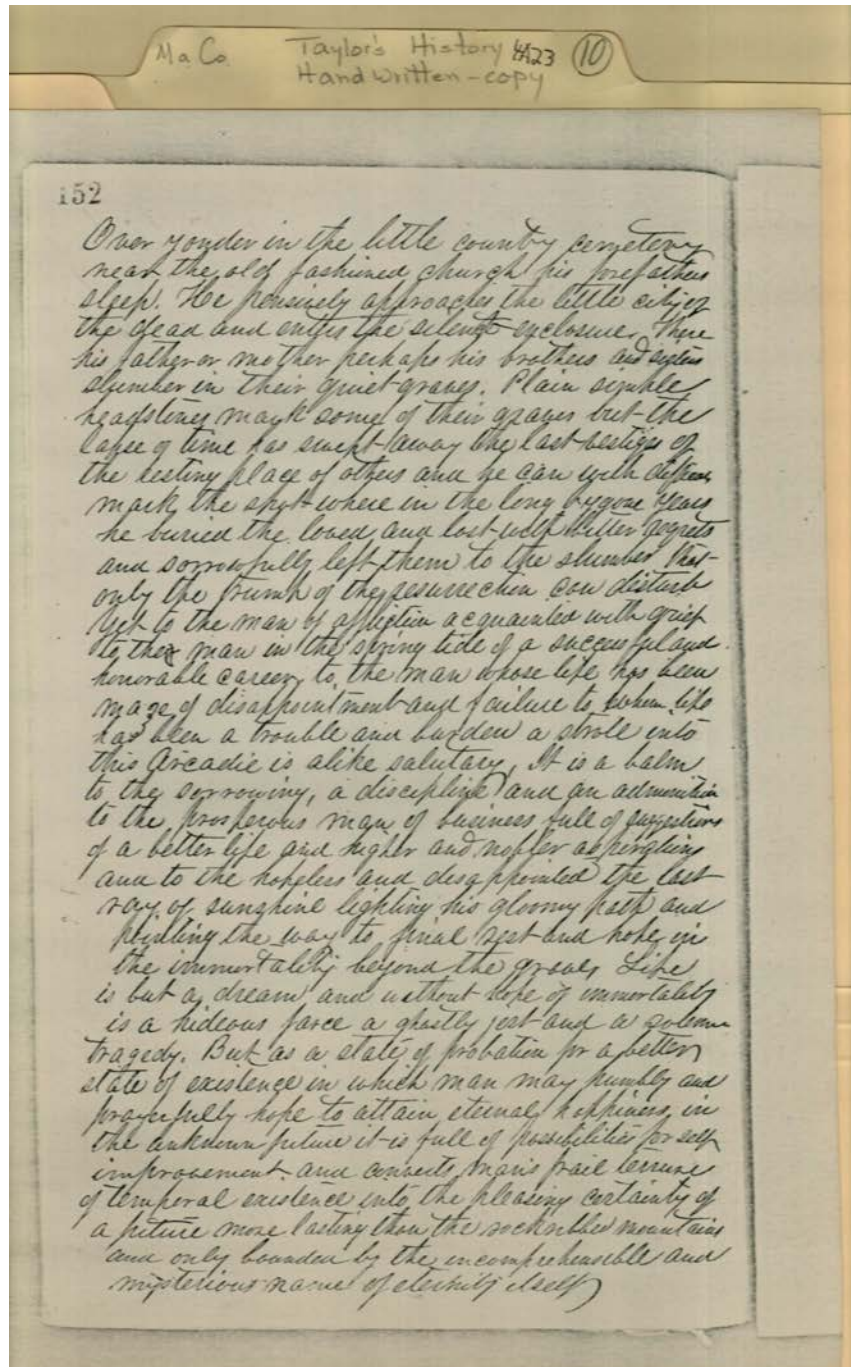 Ma Co. Taylor's History 4A23 10
Hand written - copy
152
Over yonder in the little country cemetery
near the old fashioned church his forefathers
sleep. He pensively approaches the little city of
the dead and enters the silent enclosure. There
his father or mother perhaps his brothers and sisters
slumber in their quiet graves. Plain simple
headstones mark some of their graves but the
lapse of time has swept away the last vestiges of
the resting place of others and he can with
mark the spot where in the long bygone years
he buried the loved and lost with bitter regrets
and sorrowfully left them to the slumber that
only the trump of the resurrection can disturb
Yet to the man of affliction acquainted with grief
to the man in the spring tide of a successful and
honorable career, to the man whose life has been
maze of disappointment and failure to whom life
has been a trouble and burden a strole into
this Arcadie is alike salutary, It is a balm
to the sorrowing, a discipline and an admonition
to the prosperous man of business full of suggestions
of a better life and higher and nobler aspirations
and to the hopeless and disappointed the last
ray of sunshine lighting his gloomy path and
pointing the way to final rest and hope in
the immortality beyond the grave. Life
is but a dream and without hope of immortality
is a hideous farce a ghastly jest and a solemn
tragedy. But as a state of probation for a better
state of existence in which man may humbly and
prayerfully hope to attain eternal happiness in
the unknown future it is full of possibilities for self
improvement and converts man's frail tenure
of temporal existence into the pleasing certainty of
a future more lasting than the rockribbed mountains
and only bounded by the incomprehensible and
mysterious name of eternity itself